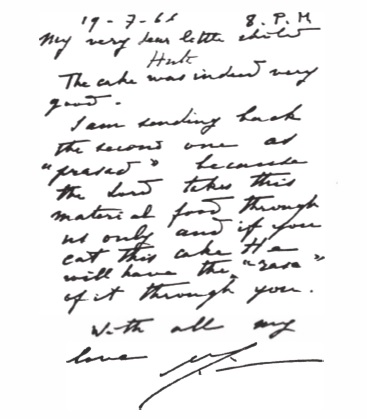 19-7-66 8. P.M
My very dear little child
Huta
The cake was indeed very
good.
I am sending back
the second one as
"prasad" because
the Lord takes this
material food through
us only and if you
eat this cake He
will have the "rasa"
of it through you.
With all my
love